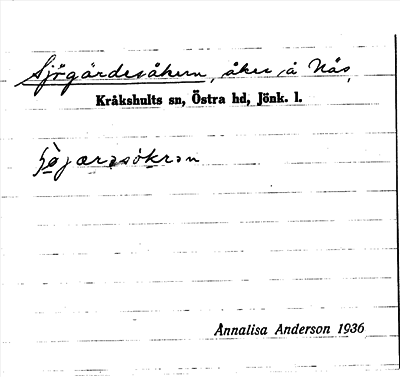 Sjögärdesåkern, åker å Nås,
Kråkshults sn, Östra hd, Jönk. l.
Annalisa Anderson 1936